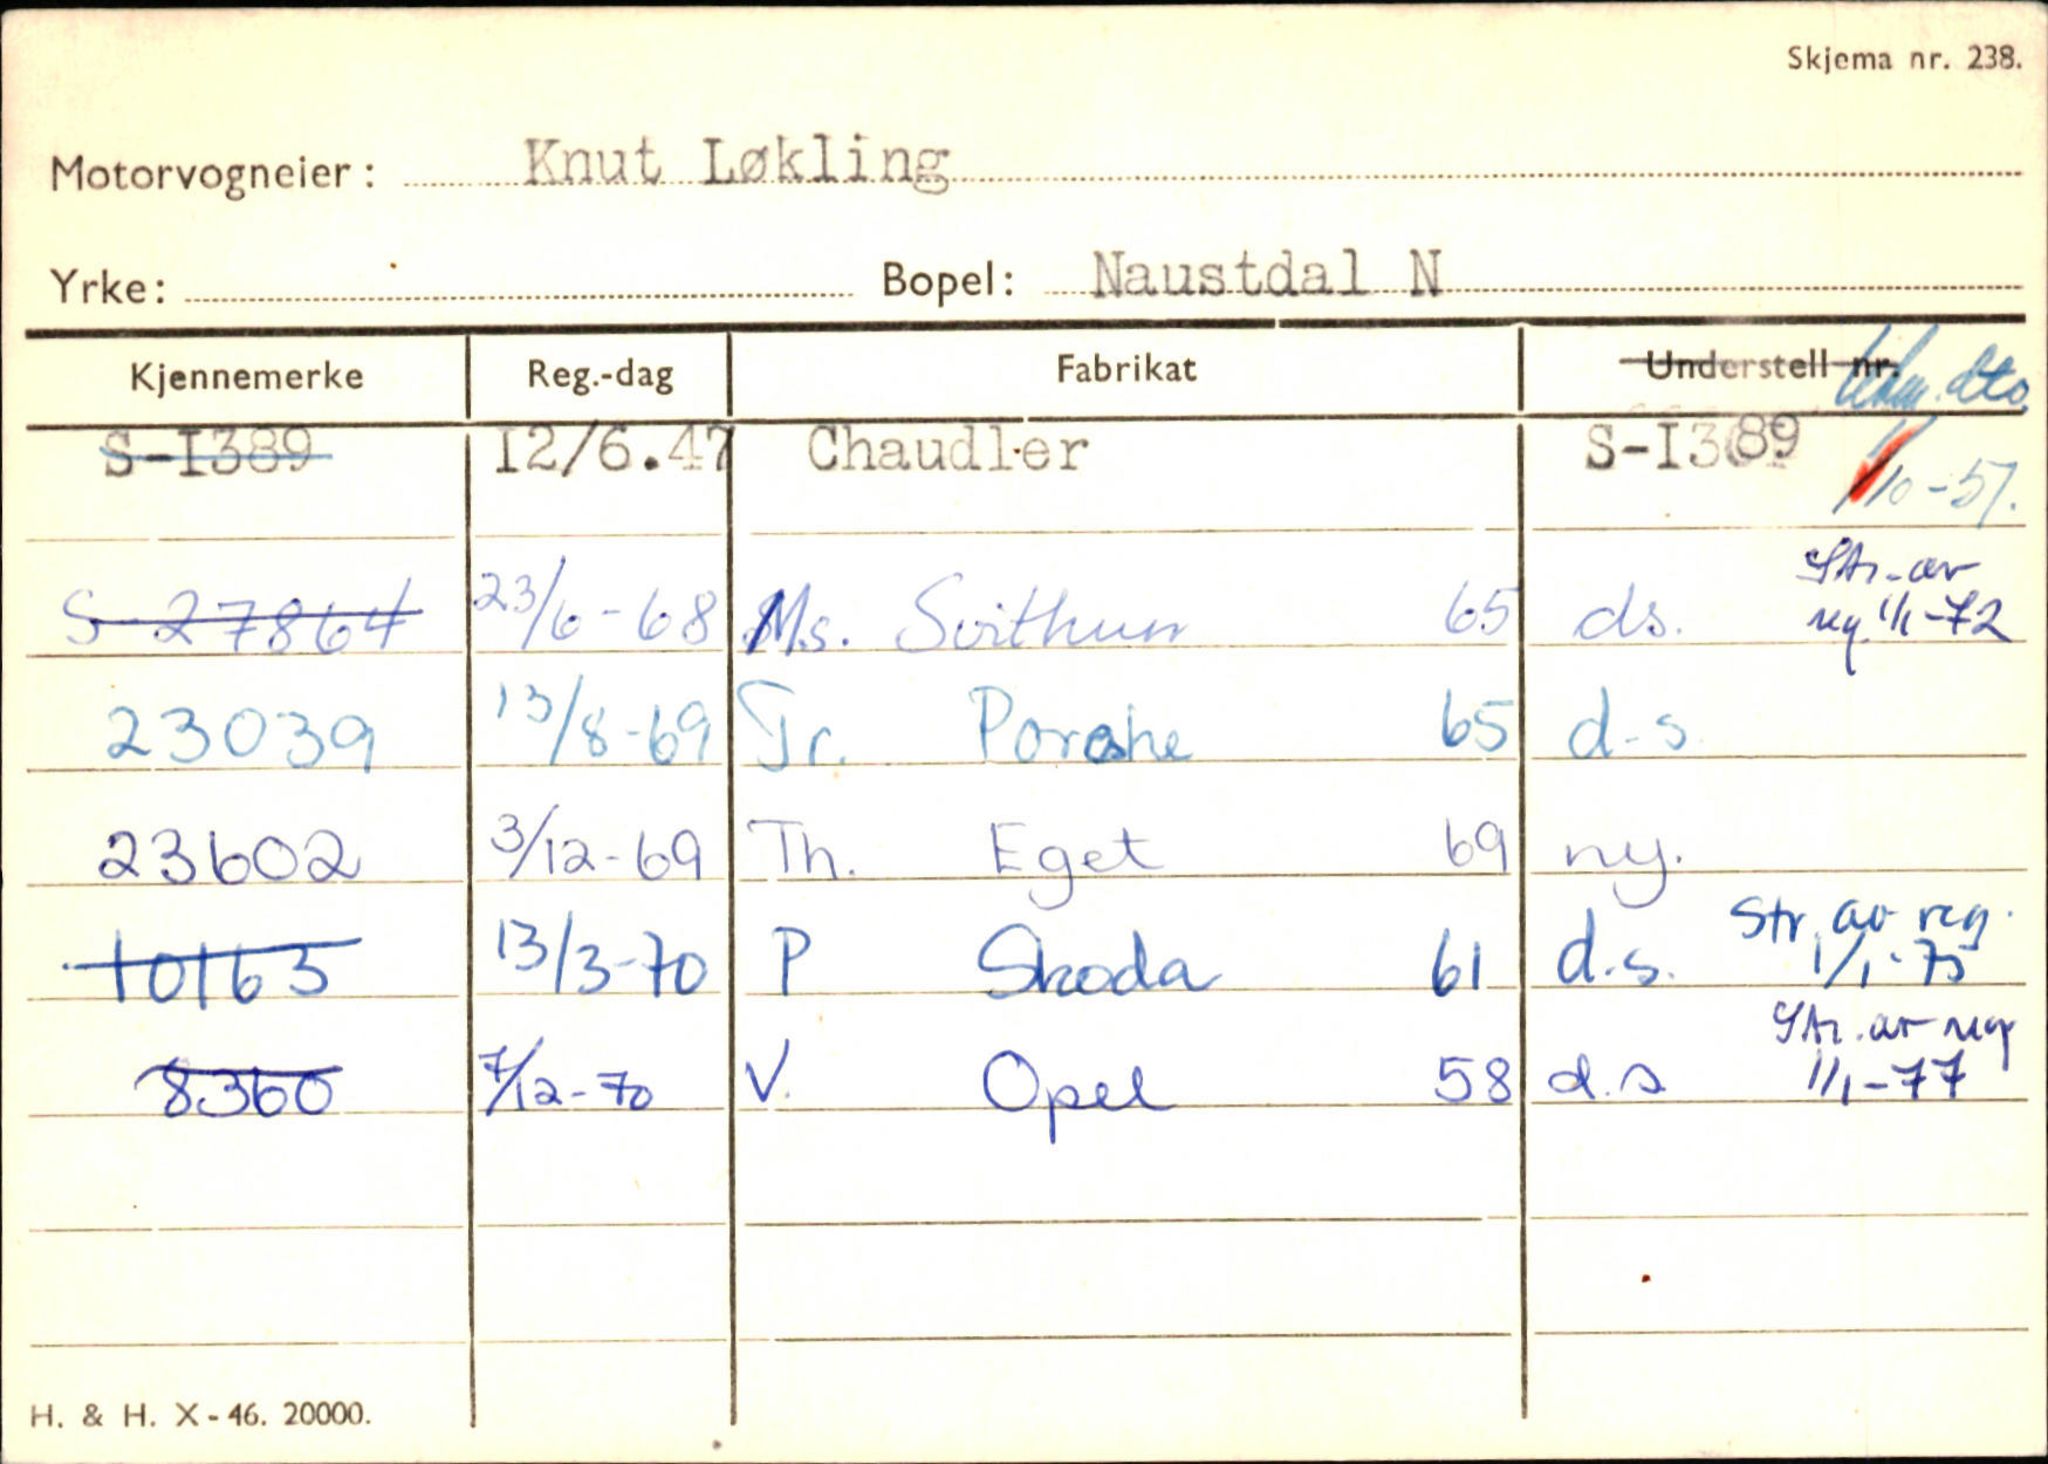 Skjema nr. 238.
Motorvogneier: Knut Løkling
Yrke: Bopel: Naustdal N
Kjennemerke Reg.-dag Fabrikat Understell nr. dto.
S-I389 I2/6.47 Chaudler S-I389 1/10-57.
S-27864 23/6-68 Ms. Svithun 65 ds. Str. av
reg. 1/1-72
23039 13/8-69 Tr. Porshe 65 d-s
23602 3/12-69 Th. Eget 69 ny.
Str. av reg.
10163 13/3-70 P Skoda 61 d.s. 1/1-75
Str. av reg
8360 7/12-70 V. Opel 58 d.s 1/1-77
H. & H. X-46. 20000.